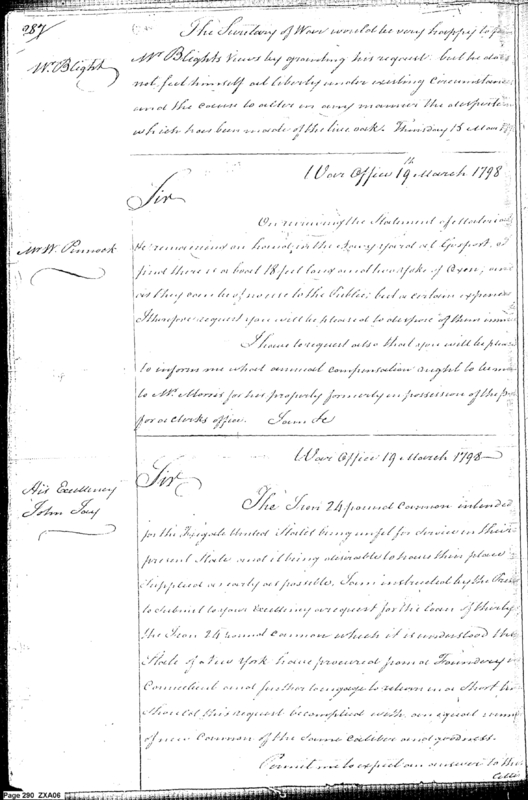 287
Wm Blight
The Secretary of War would be very happy to
Mr Blights views by granting his request. but he does
not feel himself at liberty under existing circumstances
and the cause to alter in any manner the
which has been made of the live oak. Thursday 15
War Office 19th March 1798
Mr W. Pennock
Sir
On reviewing the Statement of Materials
remaining on hand, with the Navy Yard at Gosport, I
find there is a boat 18 feet long and two Yoke of Oxen; and
as they can be of no use to the Public; but a certain expence
I therefore request you will be pleased to dispose of them
I have to request also that you will be
to inform me what annual compensation ought to be
to Mr. Morris for his property formerly in possession of the
for a Clerks office. I am &c
War Office 19 March 1798
His Excellency
John Jay
Sir
The Iron 24 pound Cannon intended
for the Frigate United States being unfit for Service in their
present State and it being desirable to have their place
Supplied as early as possible. I am instructed by the
to Submit to your Excellency a request for the loan of thirty
Iron 24 pound cannon which it is understood the
State of New York have procured from a Foundery in
Connecticut and further to engage to return in a Short
Should this request be complied with an equal
of new Cannon of the Same calibre and goodness.
Permit me to expect an answer to this
Page 290 ZXA06